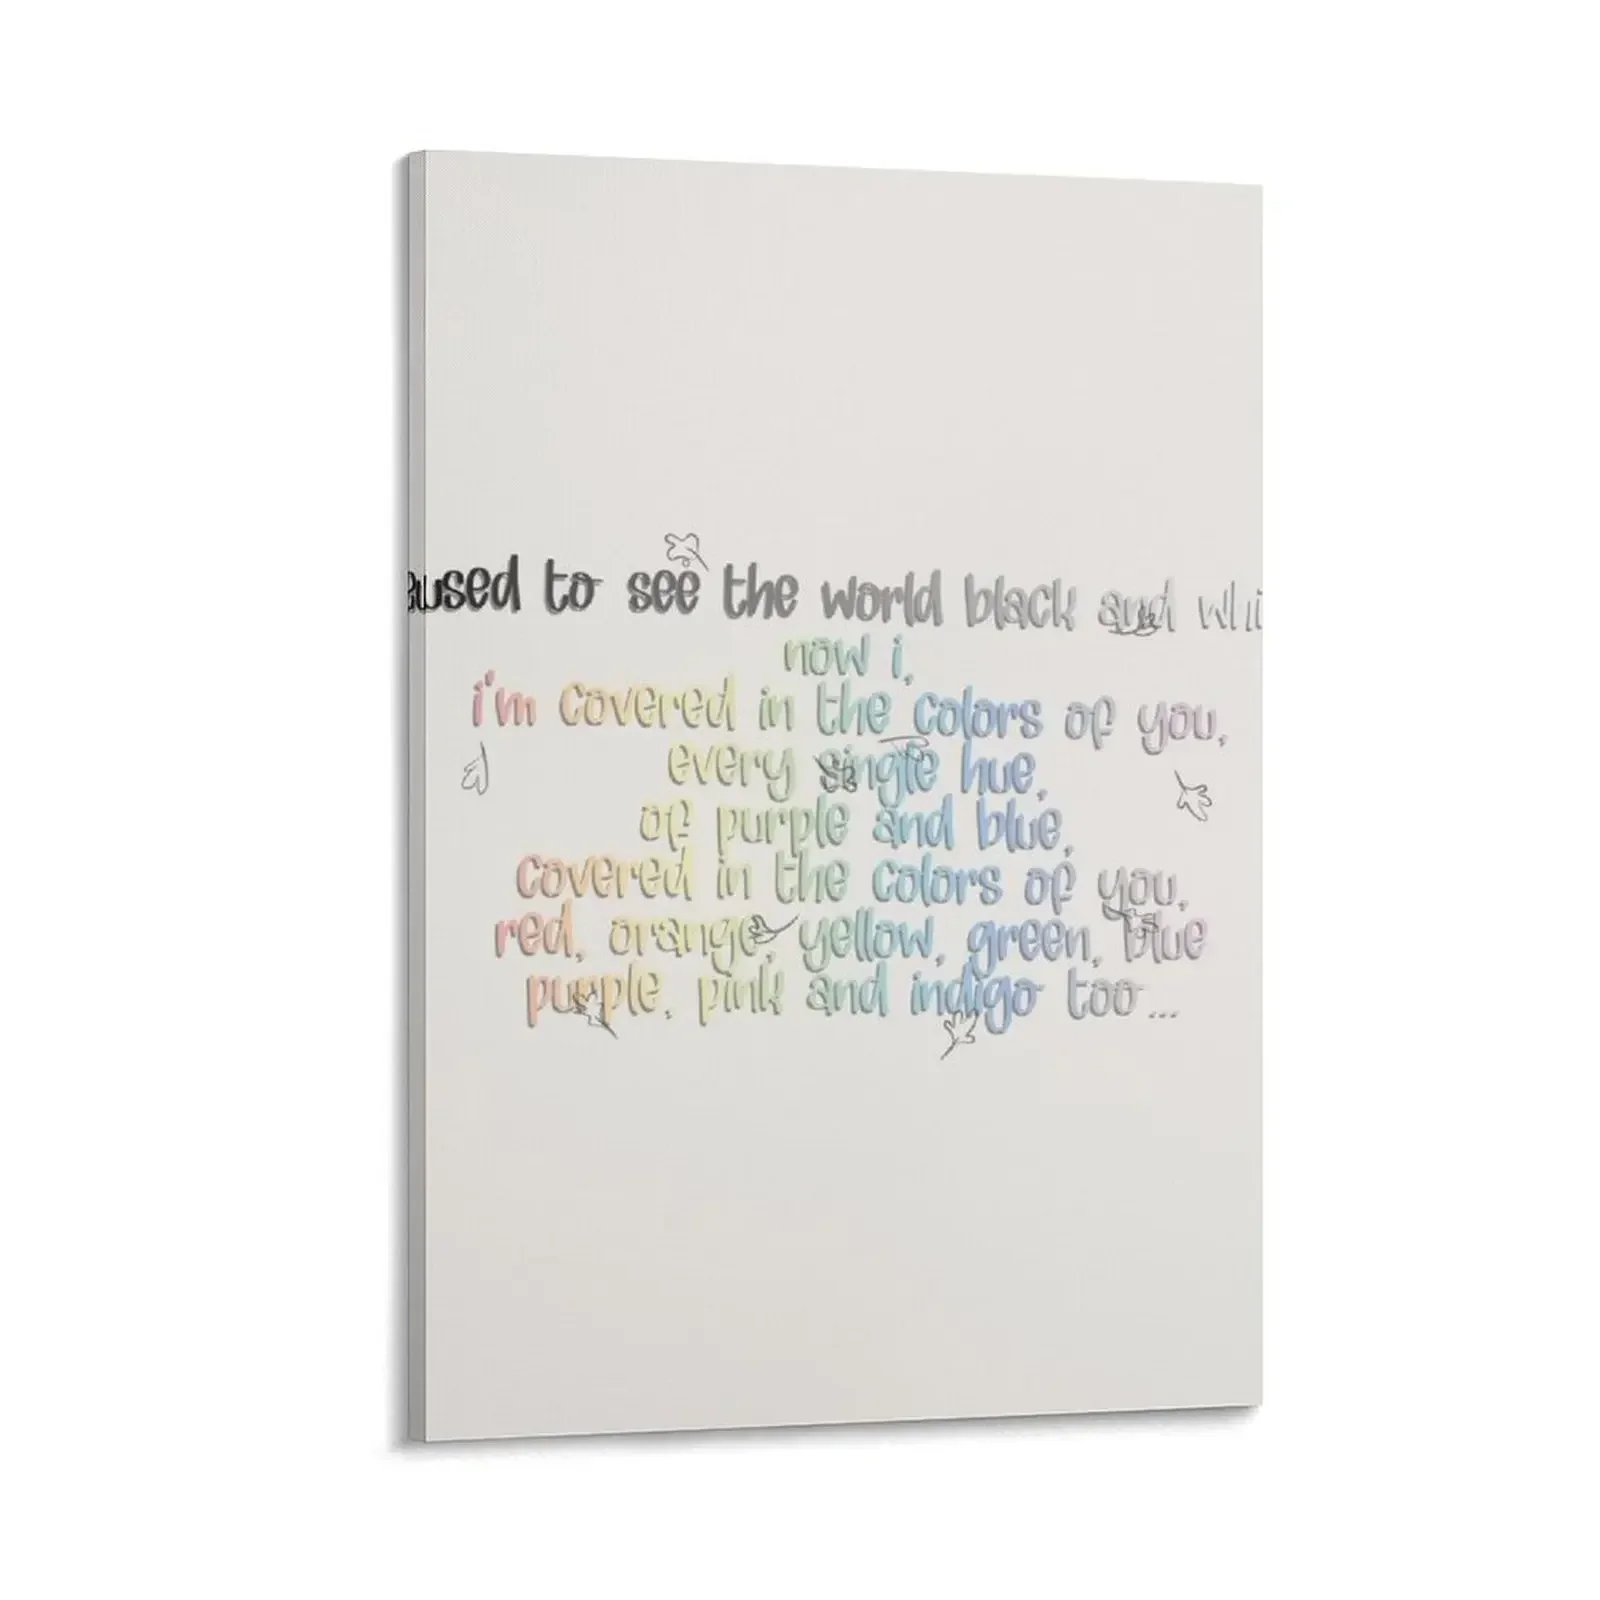 used to see the world black and whi
now i,
i'm covered in the colors of you,
every single hue,
of purple and blue,
covered in the colors of you,
red, orange, yellow, green, blue
purple, pink and indigo too...